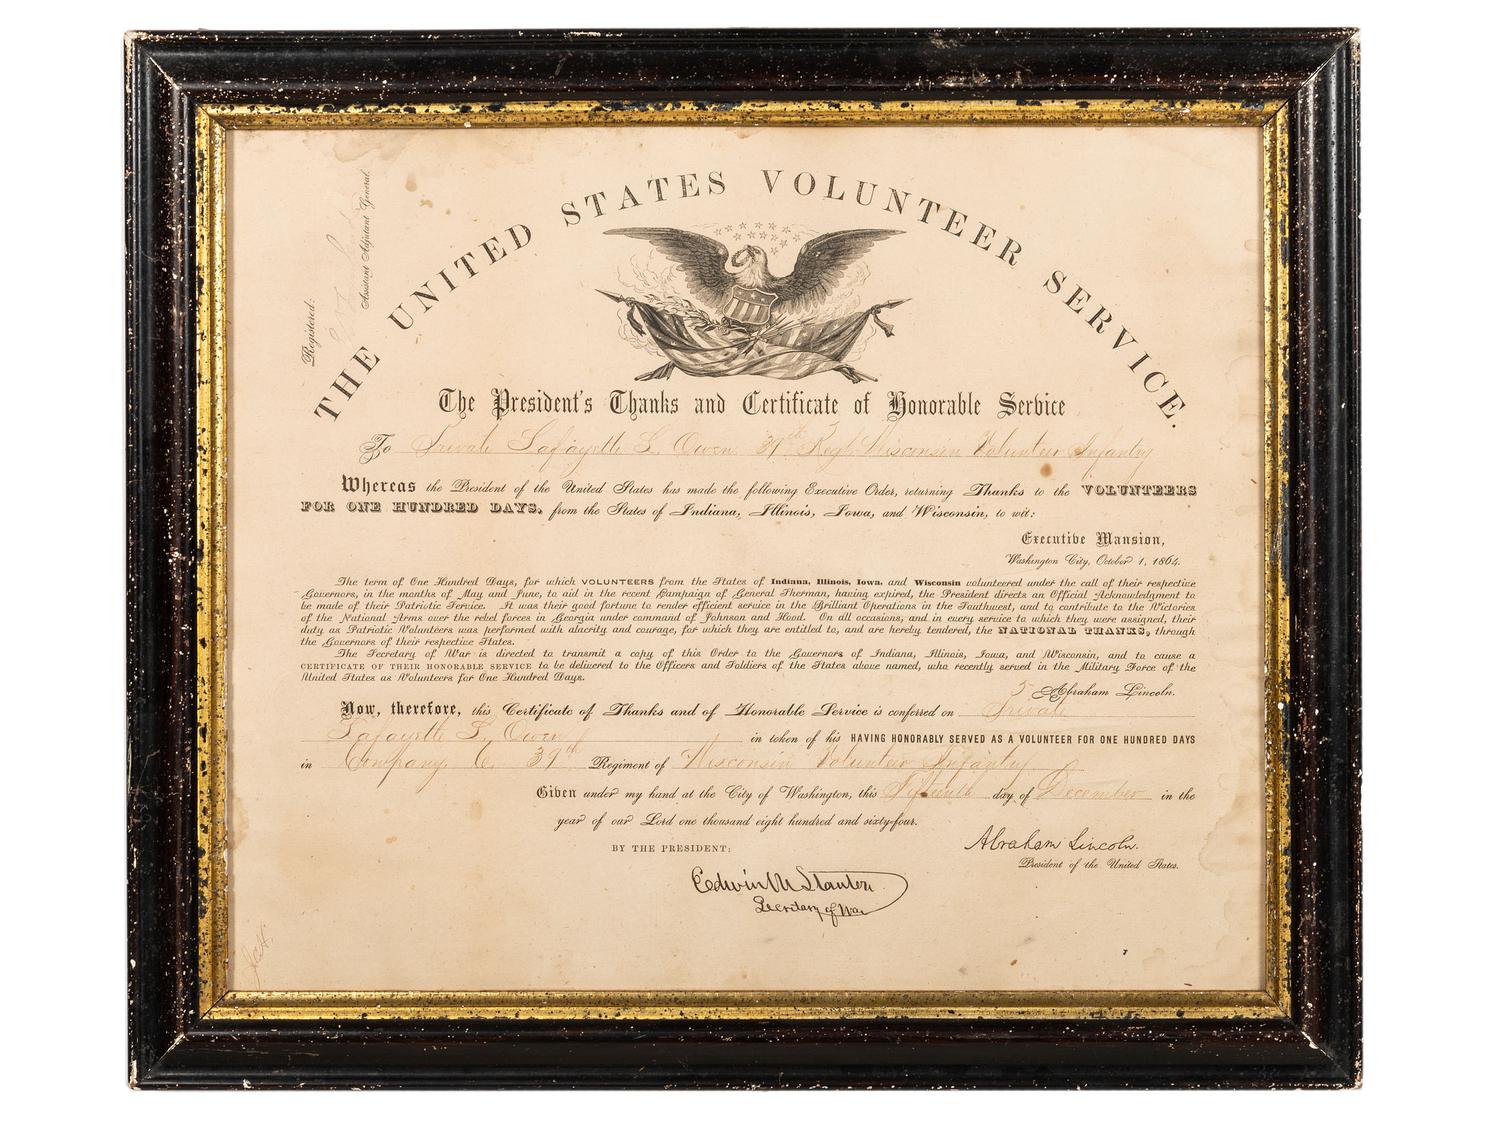 Registered:
Assistant Adjutant General.
THE UNITED STATES VOLUNTEER SERVICE.
The President's Thanks and Certificate of Honorable Service
To Private Lafayette L. Owen 39th Regt. Wisconsin Volunteer Infantry
Whereas the President of the United States has made the following Executive Order, returning Thanks to the VOLUNTEERS
FOR ONE HUNDRED DAYS, from the States of Indiana, Illinois, Iowa, and Wisconsin, to wit:
Executive Mansion,
Washington City, October 1, 1864.
The term of One Hundred Days, for which VOLUNTEERS from the States of Indiana, Illinois, Iowa, and Wisconsin volunteered under the call of their respective
Governors, in the months of May and June, to aid in the recent Campaign of General Sherman, having expired, the President directs an Official Acknowledgment to
be made of their Patriotic Service. It was their good fortune to render efficient service in the Brilliant Operations in the Southwest, and to contribute to the Victories
of the National Arms over the rebel forces in Georgia under command of Johnson and Hood. On all occasions, and in every service to which they were assigned, their
duty as Patriotic Volunteers was performed with alacrity and courage, for which they are entitled to, and are hereby tendered, the NATIONAL THANKS, through
the Governors of their respective States.
The Secretary of War is directed to transmit a copy of this Order to the Governors of Indiana, Illinois, Iowa, and Wisconsin, and to cause a
CERTIFICATE OF THEIR HONORABLE SERVICE to be delivered to the Officers and Soldiers of the States above named, who recently served in the Military Force of the
United States as Volunteers for One Hundred Days.
Abraham Lincoln.
Now, therefore, this Certificate of Thanks and of Honorable Service is conferred on Private
Lafayette L. Owen in token of his HAVING HONORABLY SERVED AS A VOLUNTEER FOR ONE HUNDRED DAYS
in Company C. 39th Regiment of Wisconsin Volunteer Infantry
Given under my hand at the City of Washington, this Fifteenth day of December in the
year of our Lord one thousand eight hundred and sixty-four.
BY THE PRESIDENT:
Abraham Lincoln.
President of the United States.
Edwin M Stanton
Secretary of War